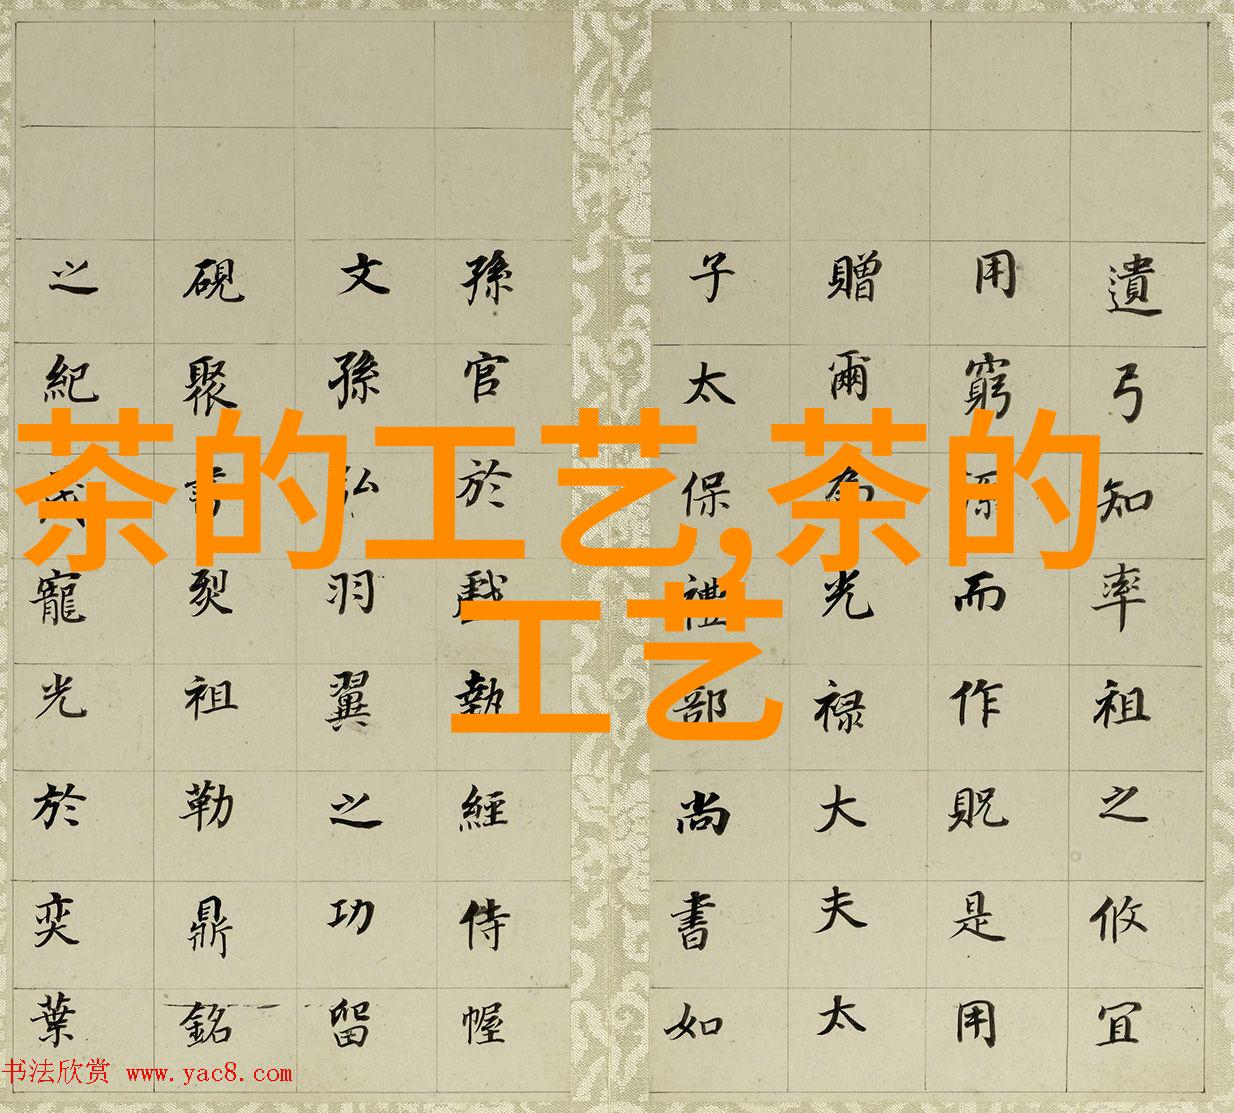 茶的工艺,茶的
工艺
遺弓知率祖之攸宜
用窮深而作貺是用
贈爾為光禄大夫太
子太保禮部尚書如
孫官於戲執經侍幄
文孫弘羽翼之功留
硯聚烈祖勒鼎銘
之紀寵光於奕葉
书法欣赏 www.yac8.com